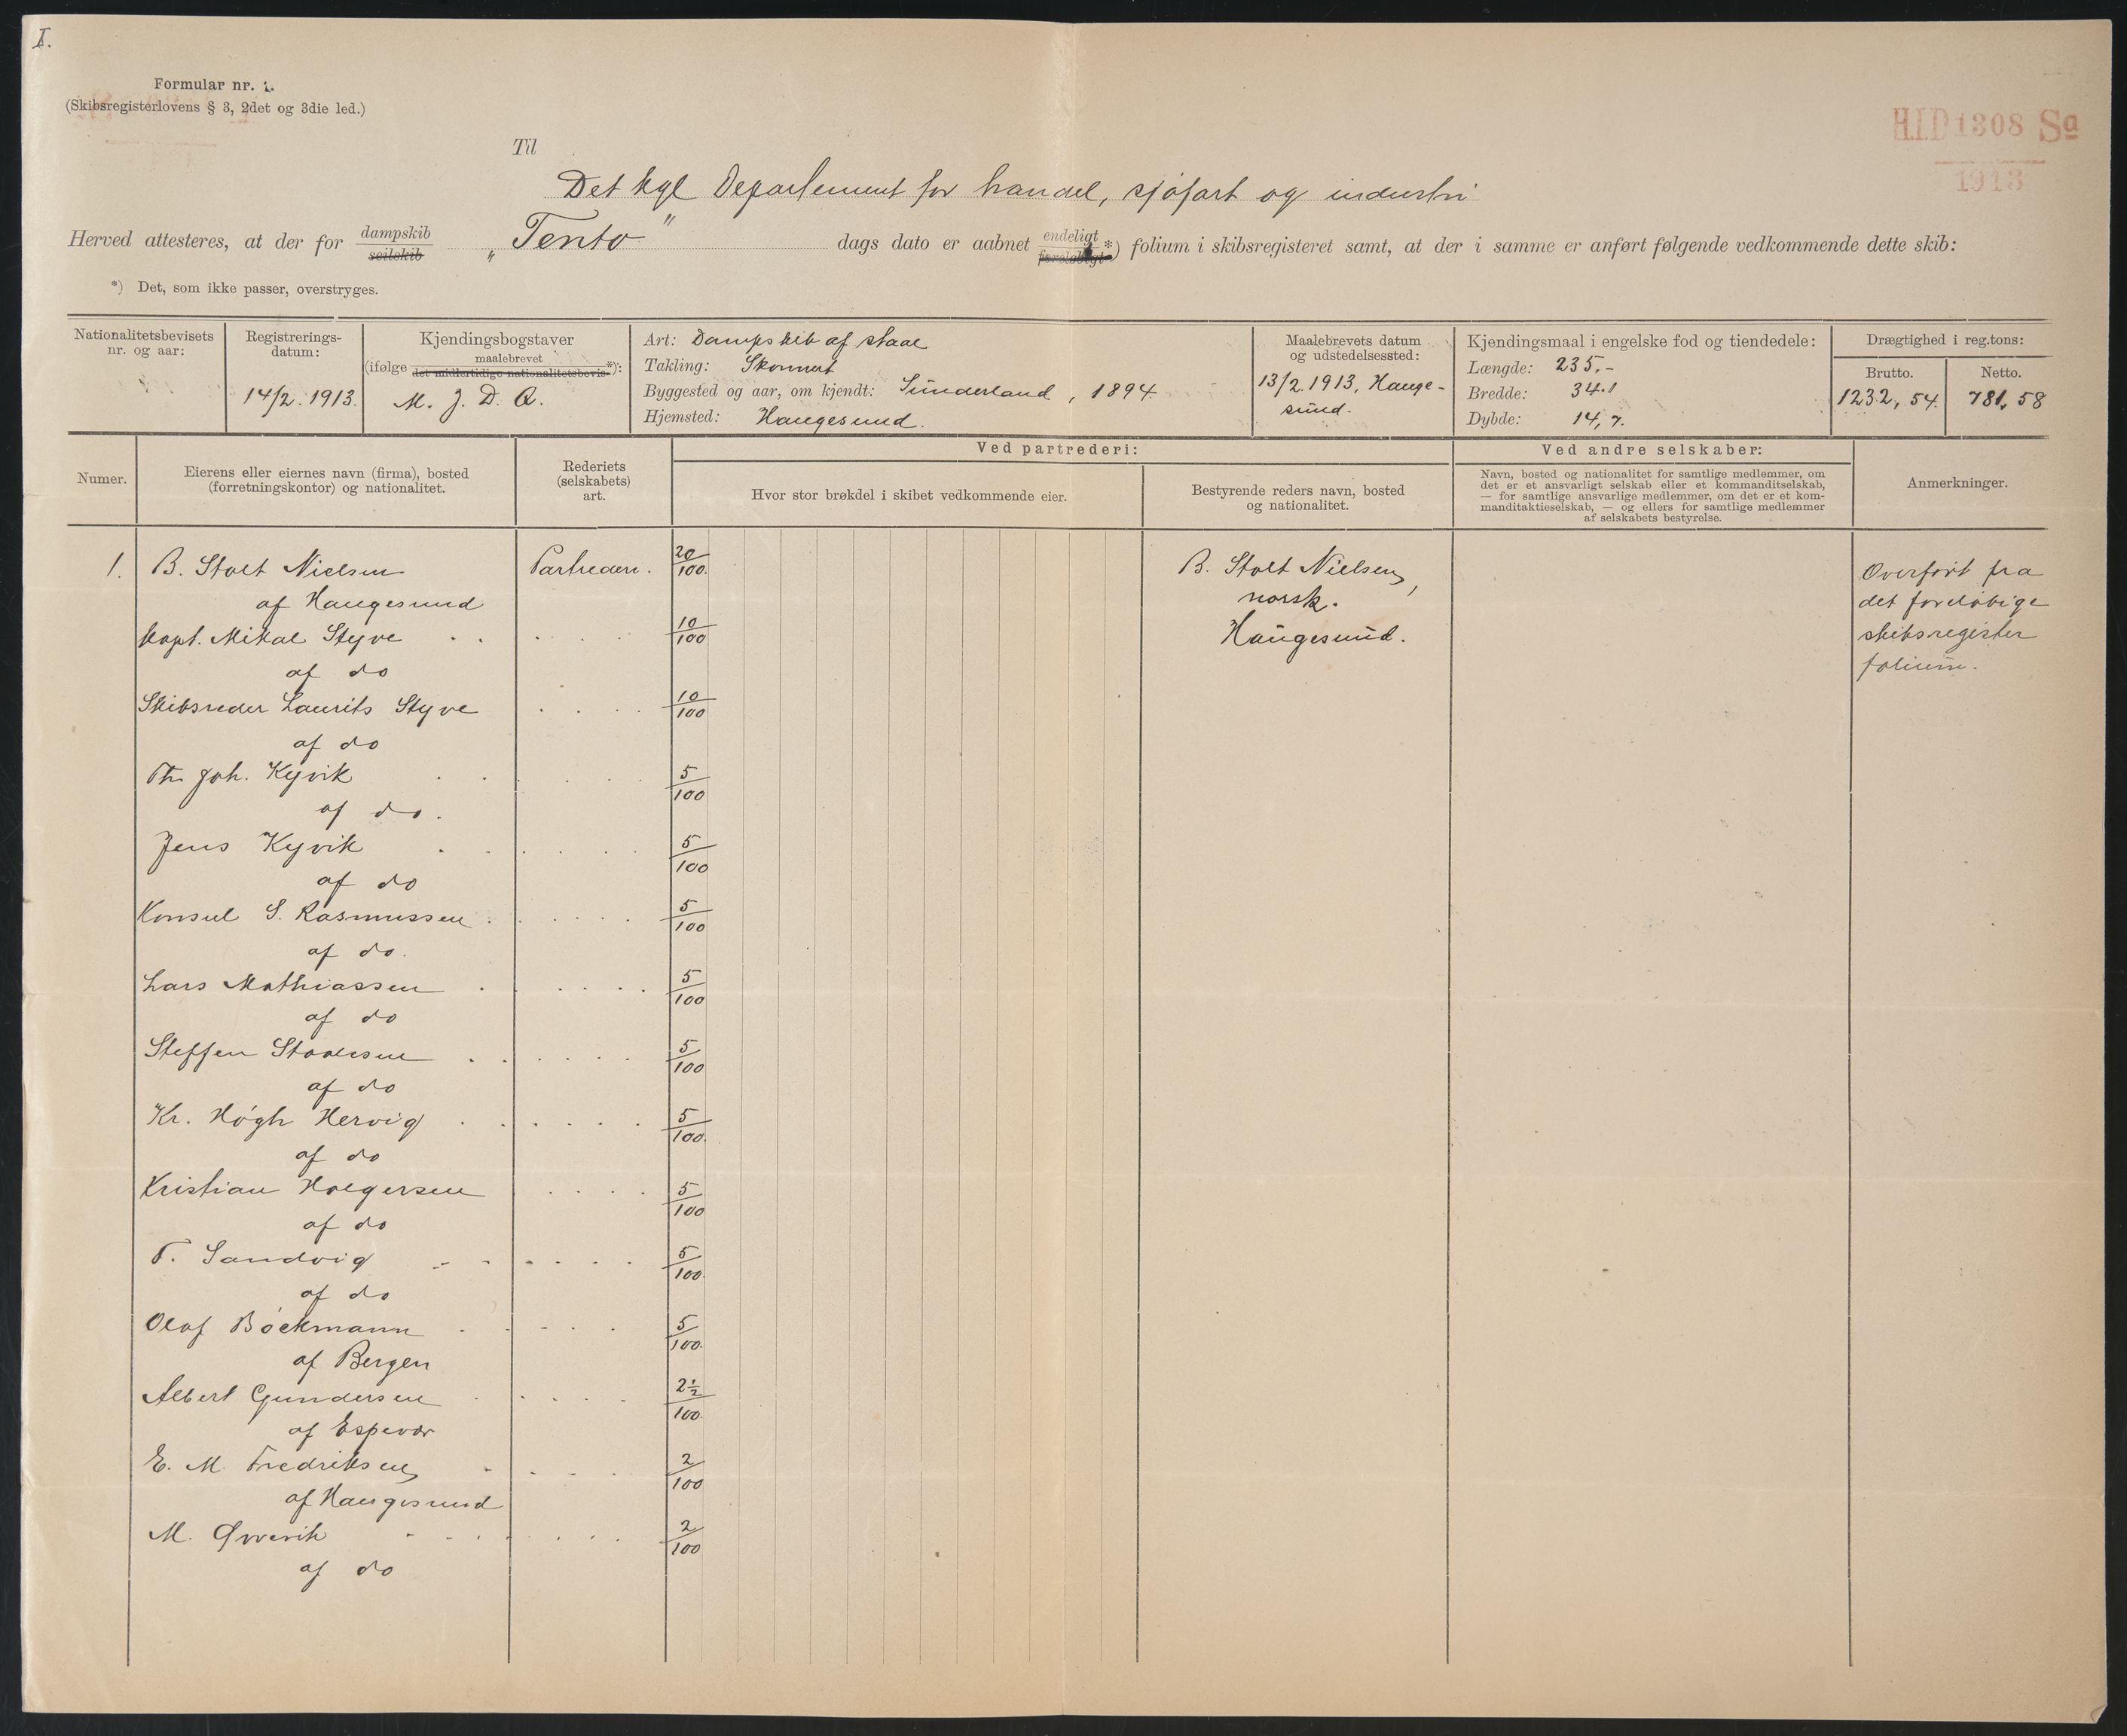 I.
Formular nr. 1.
(Skibsregisterlovens § 3, 2det og 3die led.)
H.I.D 1308 Sa
1913
Til
Det kgl Departement for handel, sjøfart og industri
Herved attesteres, at der for dampskib seilskib „Tento" dags dato er aabnet endeligt foreløbigt *) folium i skibsregisteret samt, at der i samme er anført følgende vedkommende dette skib:
*) Det, som ikke passer, overstryges.
Nationalitetsbevisets nr. og aar:
Registrerings-datum:
14/2. 1913.
Kjendingsbogstaver
(ifølge maalebrevet det midlertidige nationalitetsbevis *):
M. J. D. Q.
Art: Dampskib af staal
Takling: Skonnert
Byggested og aar, om kjendt: Sunderland, 1894
Hjemsted: Haugesund.
Maalebrevets datum
og udstedelsessted:
13/2. 1913, Hauge-
sund.
Kjendingsmaal i engelske fod og tiendedele:
Længde: 235.-
Bredde: 34.1
Dybde: 14,7.
Drægtighed i reg.tons:
Brutto. Netto.
1232,54. 781,58
Numer.
Eierens eller eiernes navn (firma), bosted
(forretningskontor) og nationalitet.
Rederiets
(selskabets)
art.
Ved partrederi:
Hvor stor brøkdel i skibet vedkommende eier.
Bestyrende reders navn, bosted
og nationalitet.
Ved andre selskaber:
Navn, bosted og nationalitet for samtlige medlemmer, om
det er et ansvarligt selskab eller et kommanditselskab,
— for samtlige ansvarlige medlemmer, om det er et kom-
manditaktieselskab, — og ellers for samtlige medlemmer
af selskabets bestyrelse.
Anmerkninger.
1. B. Stolt Nielsen Partrederi. 20/100.
af Haugesund
Kapt. Mikal Styve . . . . . . 10/100
af do
Skibsreder Laurits Styve . . . . 10/100
af do
Th. Joh. Kyvik . . . . . . 5/100
af do.
Jens Kyvik . . . . . . 5/100
af do
Konsul S. Rasmussen . . . . . 5/100
af do.
Lars Mathiassen . . . . . . 5/100
af do
Steffen Staalesen . . . . . . 5/100
af do
Kr. Høgh Hervig . . . . . . 5/100.
af do
Kristian Holgersen . . . . 5/100
af do
T. Sandvig - - . . . . 5/100.
af do
Olaf Bøckmann . - - . . 5/100.
af Bergen
Albert Gundersen . . . . . 2½/100.
af Espevær
E. M. Fredriksen - - . . . 2/100
af Haugesund
M. - - . . . . . 2/100
af do
B. Stolt Nielsen,
norsk.
Haugesund.
Overført fra
det foreløbige
skibsregister
folium.